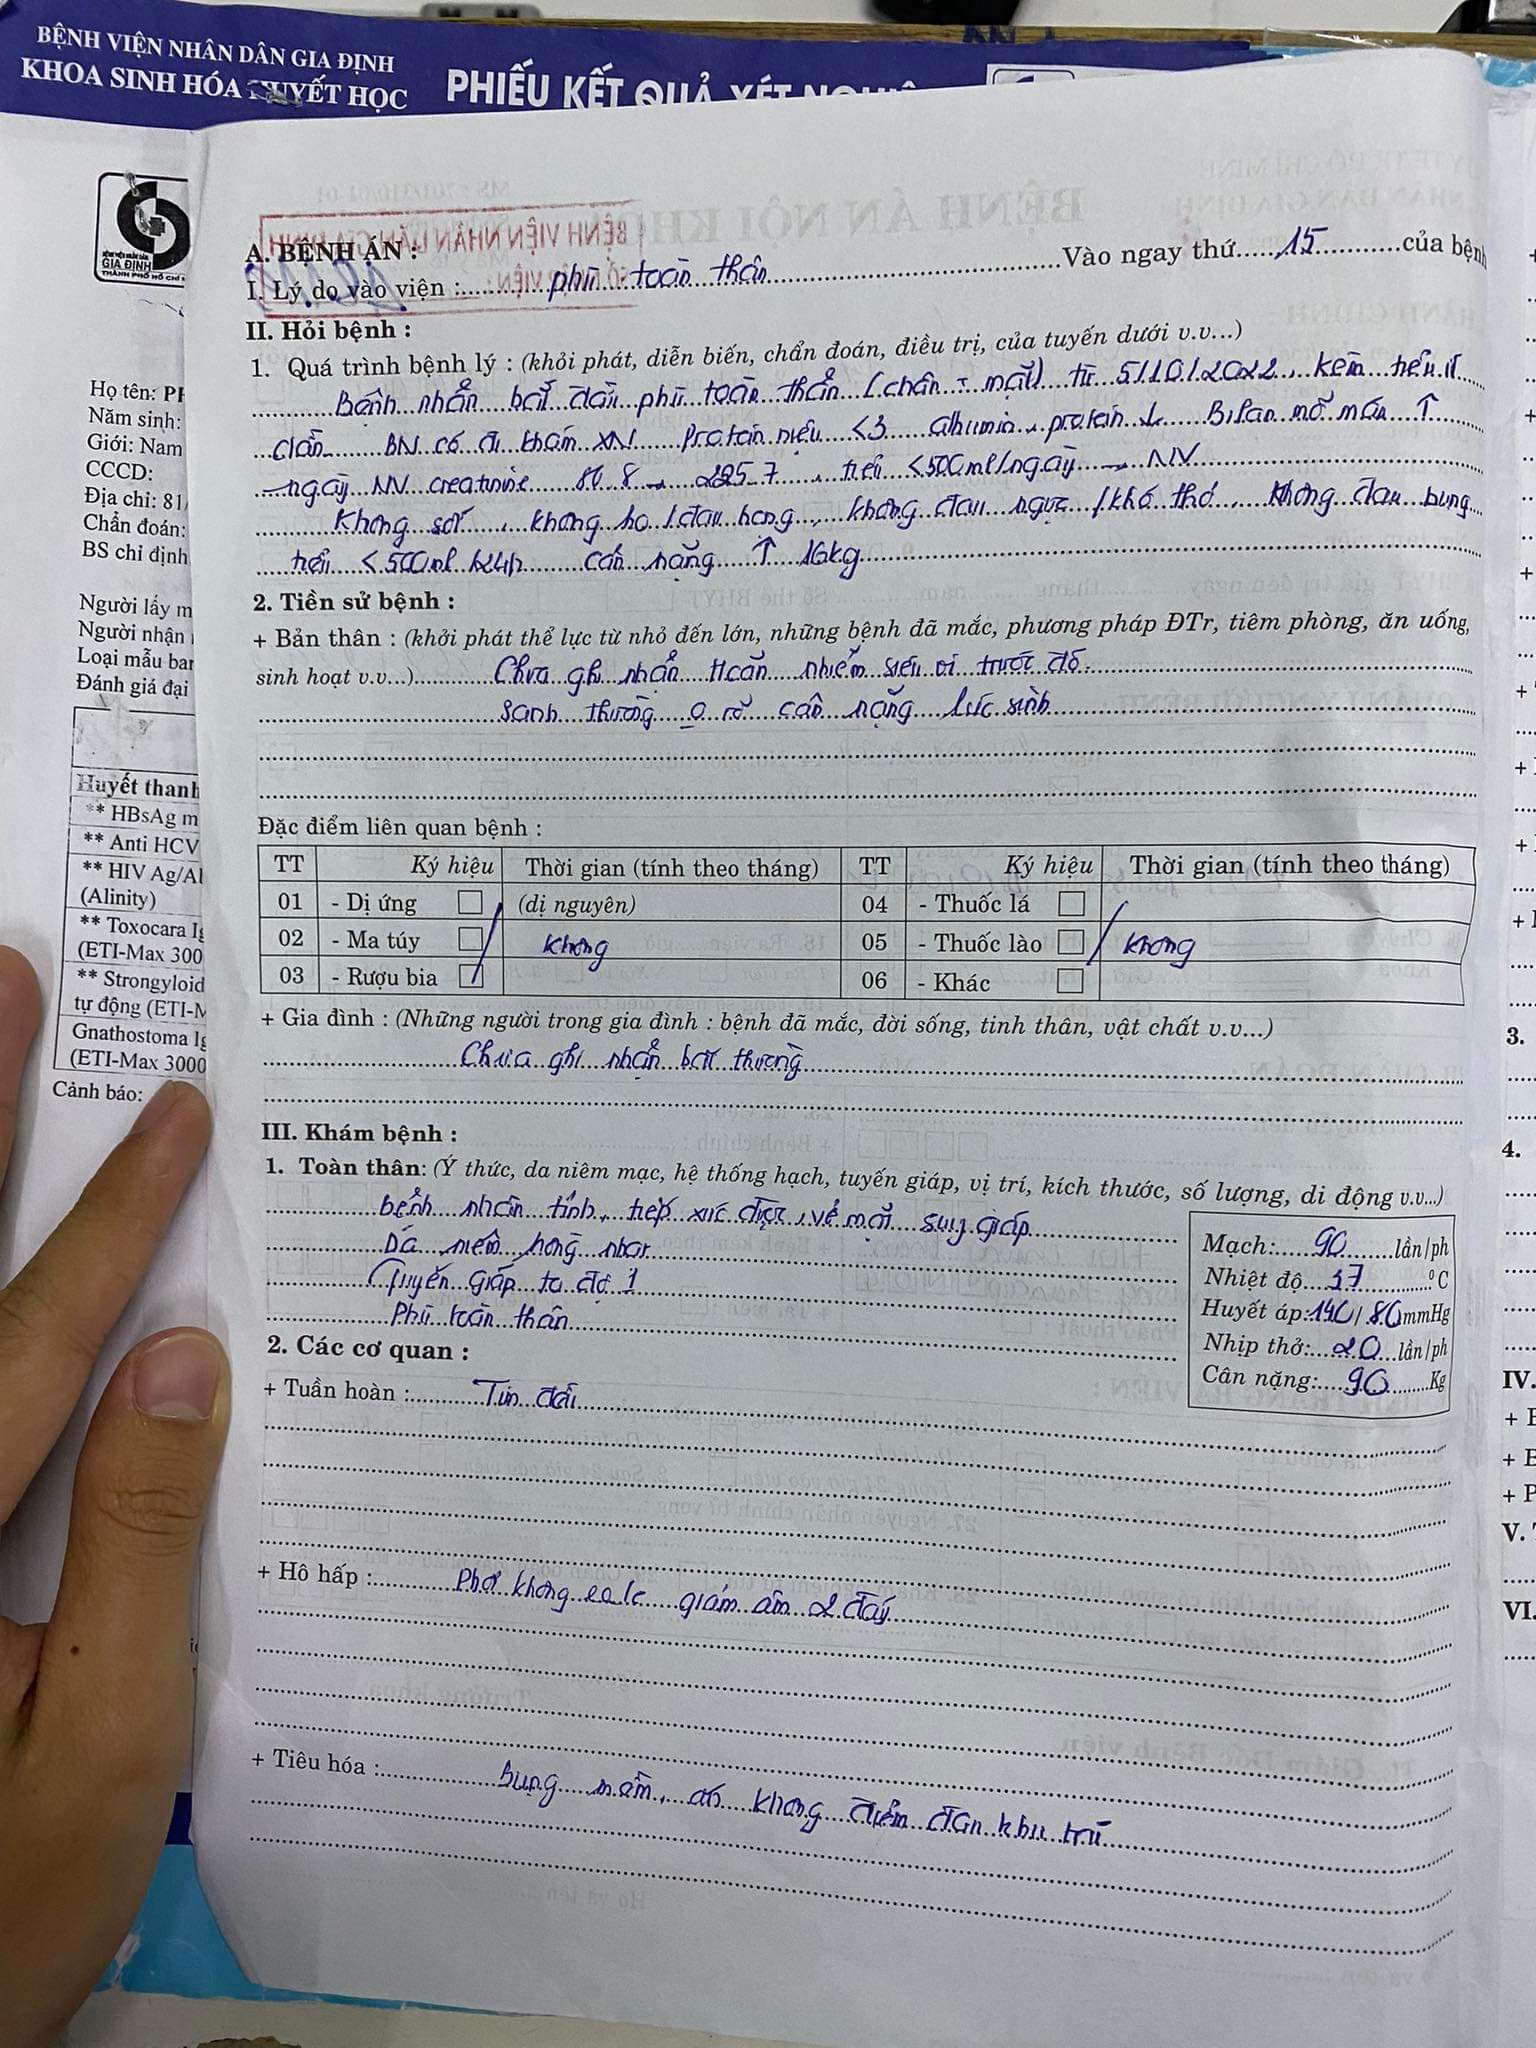 BỆNH VIỆN NHÂN DÂN GIA ĐỊNH
KHOA SINH HÓA HUYẾT HỌC
PHIẾU KẾT QUẢ XÉT
GIA ĐỊNH
Họ tên:
Năm sinh:
Giới: Nam
CCCD:
Địa chỉ: 81/
Chẩn đoán:
BS chỉ định
Người lấy m
Người nhận
Loại mẫu
Đánh giá đại
Huyết thanh
** HBsAg m
** Anti HCV
** HIV Ag/A
(Alinity)
** Toxocara Ig
(ETI-Max 300
** Strongyloid
tự động (ETI-M
Gnathostoma Ig
(ETI-Max 3000
Cảnh báo:
A. BỆNH ÁN :
I. Lý do vào viện : phù toàn thân Vào ngay thứ 15 của bệnh
II. Hỏi bệnh :
1. Quá trình bệnh lý : (khỏi phát, diễn biến, chẩn đoán, điều trị, của tuyến dưới v.v...)
Bệnh nhân bắt đầu phù toàn thân (chân - mặt) từ 5/10/2022, kèm tiểu ít
dần BN có đi khám XN Protein niệu <3 albumin, protein ↓ Bilan mỡ máu ↑
ngày NV creatinine 80.8 → 225.7, tiểu <500ml/ngày → NV
Không sốt, không ho / đau họng, không đau ngực / khó thở, không đau bụng
tiểu <500ml /24h cân nặng ↑ 16kg
2. Tiền sử bệnh :
+ Bản thân : (khỏi phát thể lực từ nhỏ đến lớn, những bệnh đã mắc, phương pháp ĐTr, tiêm phòng, ăn uống,
sinh hoạt v.v...) Chưa ghi nhận nhiễm siêu vi trước đó
Sanh thường rõ cân nặng lúc sinh
Đặc điểm liên quan bệnh :
TT Ký hiệu Thời gian (tính theo tháng) TT Ký hiệu Thời gian (tính theo tháng)
01 - Dị ứng (dị nguyên) 04 - Thuốc lá
02 - Ma túy không 05 - Thuốc lào không
03 - Rượu bia 06 - Khác
+ Gia đình : (Những người trong gia đình : bệnh đã mắc, đời sống, tinh thân, vật chất v.v...)
Chưa ghi nhận bất thường
III. Khám bệnh :
1. Toàn thân: (Ý thức, da niêm mạc, hệ thống hạch, tuyến giáp, vị trí, kích thước, số lượng, di động v.v...)
bệnh nhân tỉnh, tiếp xúc được, vẻ mặt suy giáp
Da niêm hồng nhạt
Tuyến giáp to độ 1
Phù toàn thân
Mạch: 90 lần/ph
Nhiệt độ 37 °C
Huyết áp: 140/80 mmHg
Nhịp thở: 20 lần/ph
Cân nặng: 90 Kg
2. Các cơ quan :
+ Tuần hoàn : Tim đều
+ Hô hấp : Phổi không rale giảm âm 2 đáy
+ Tiêu hóa : bụng mềm, ấn không điểm đau khu trú
3.
4.
IV.
V.
VI.